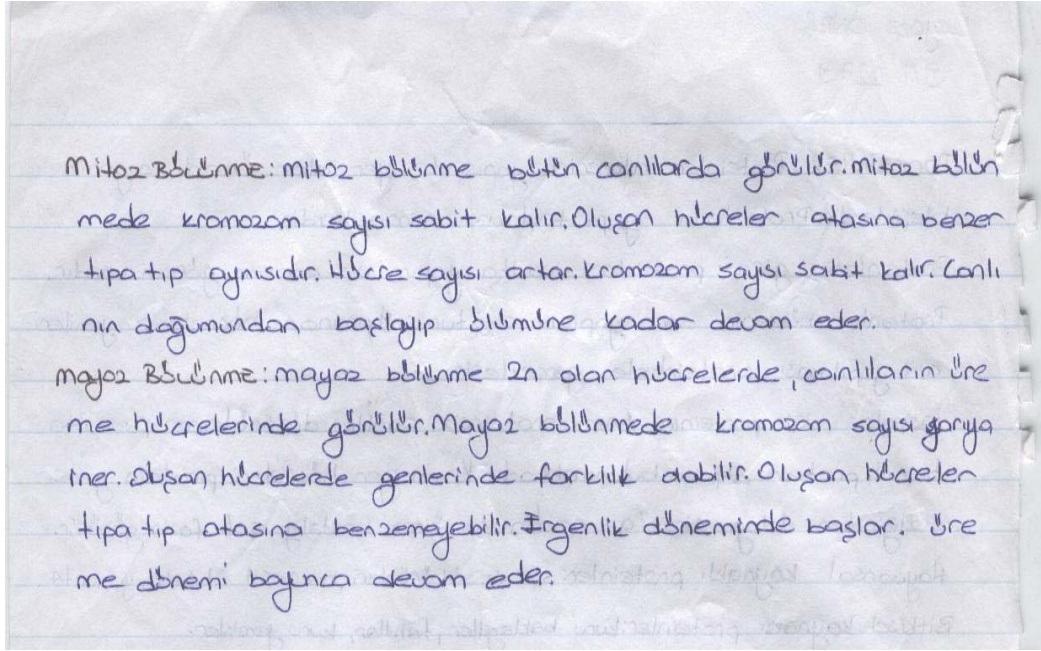 Mitoz Bölünme: mitoz bölünme bütün canlılarda görülür. mitoz bölün
mede kromozom sayısı sabit kalır. Oluşan hücreler atasına benzer
tıpa tıp aynısıdır. Hücre sayısı artar. Kromozom sayısı sabit kalır. Canlı
nın doğumundan başlayıp ölümüne kadar devam eder.
mayoz Bölünme: mayoz bölünme 2n olan hücrelerde, canlıların üre
me hücrelerinde görülür. Mayoz bölünmede kromozom sayısı yarıya
iner. Oluşan hücrelerde genlerinde farklılık olabilir. Oluşan hücreler
tıpa tıp atasına benzemeyebilir. Ergenlik döneminde başlar. üre
me dönemi boyunca devam eder.